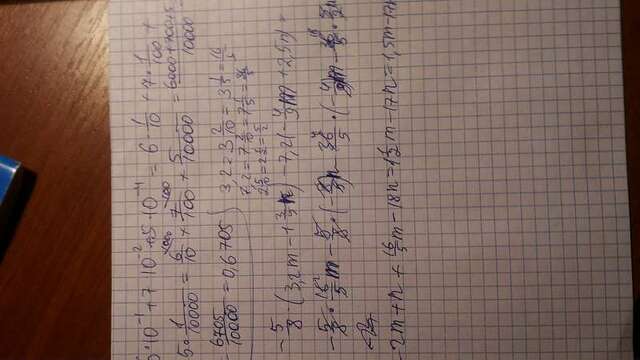 6·10⁻¹ + 7·10⁻² + 5·10⁻⁴ = 6·1/10 + 7·1/100 +
5·1/10000 = 6/10 + 7/100 + 5/10000 = 6000+700+5/10000
6705/10000 = 0,6705
3,2 = 3 2/10 = 3 1/5 = 16/5
7,2 = 7 2/10 = 7 1/5 = 36/5
2 5/10 = 2 1/2 = 5/2
-5/8·(3,2m - 1 3/5 n) - 7,2(-4/9 m + 2,5n) =
-5/8·16/5 m - 5/8·(-8/5)n - 36/5·(-4/9)m - 36/5·5/2 n
-2m + n + 16/5 m - 18n = 1 1/2 m - 17n = 1,5m - 17n